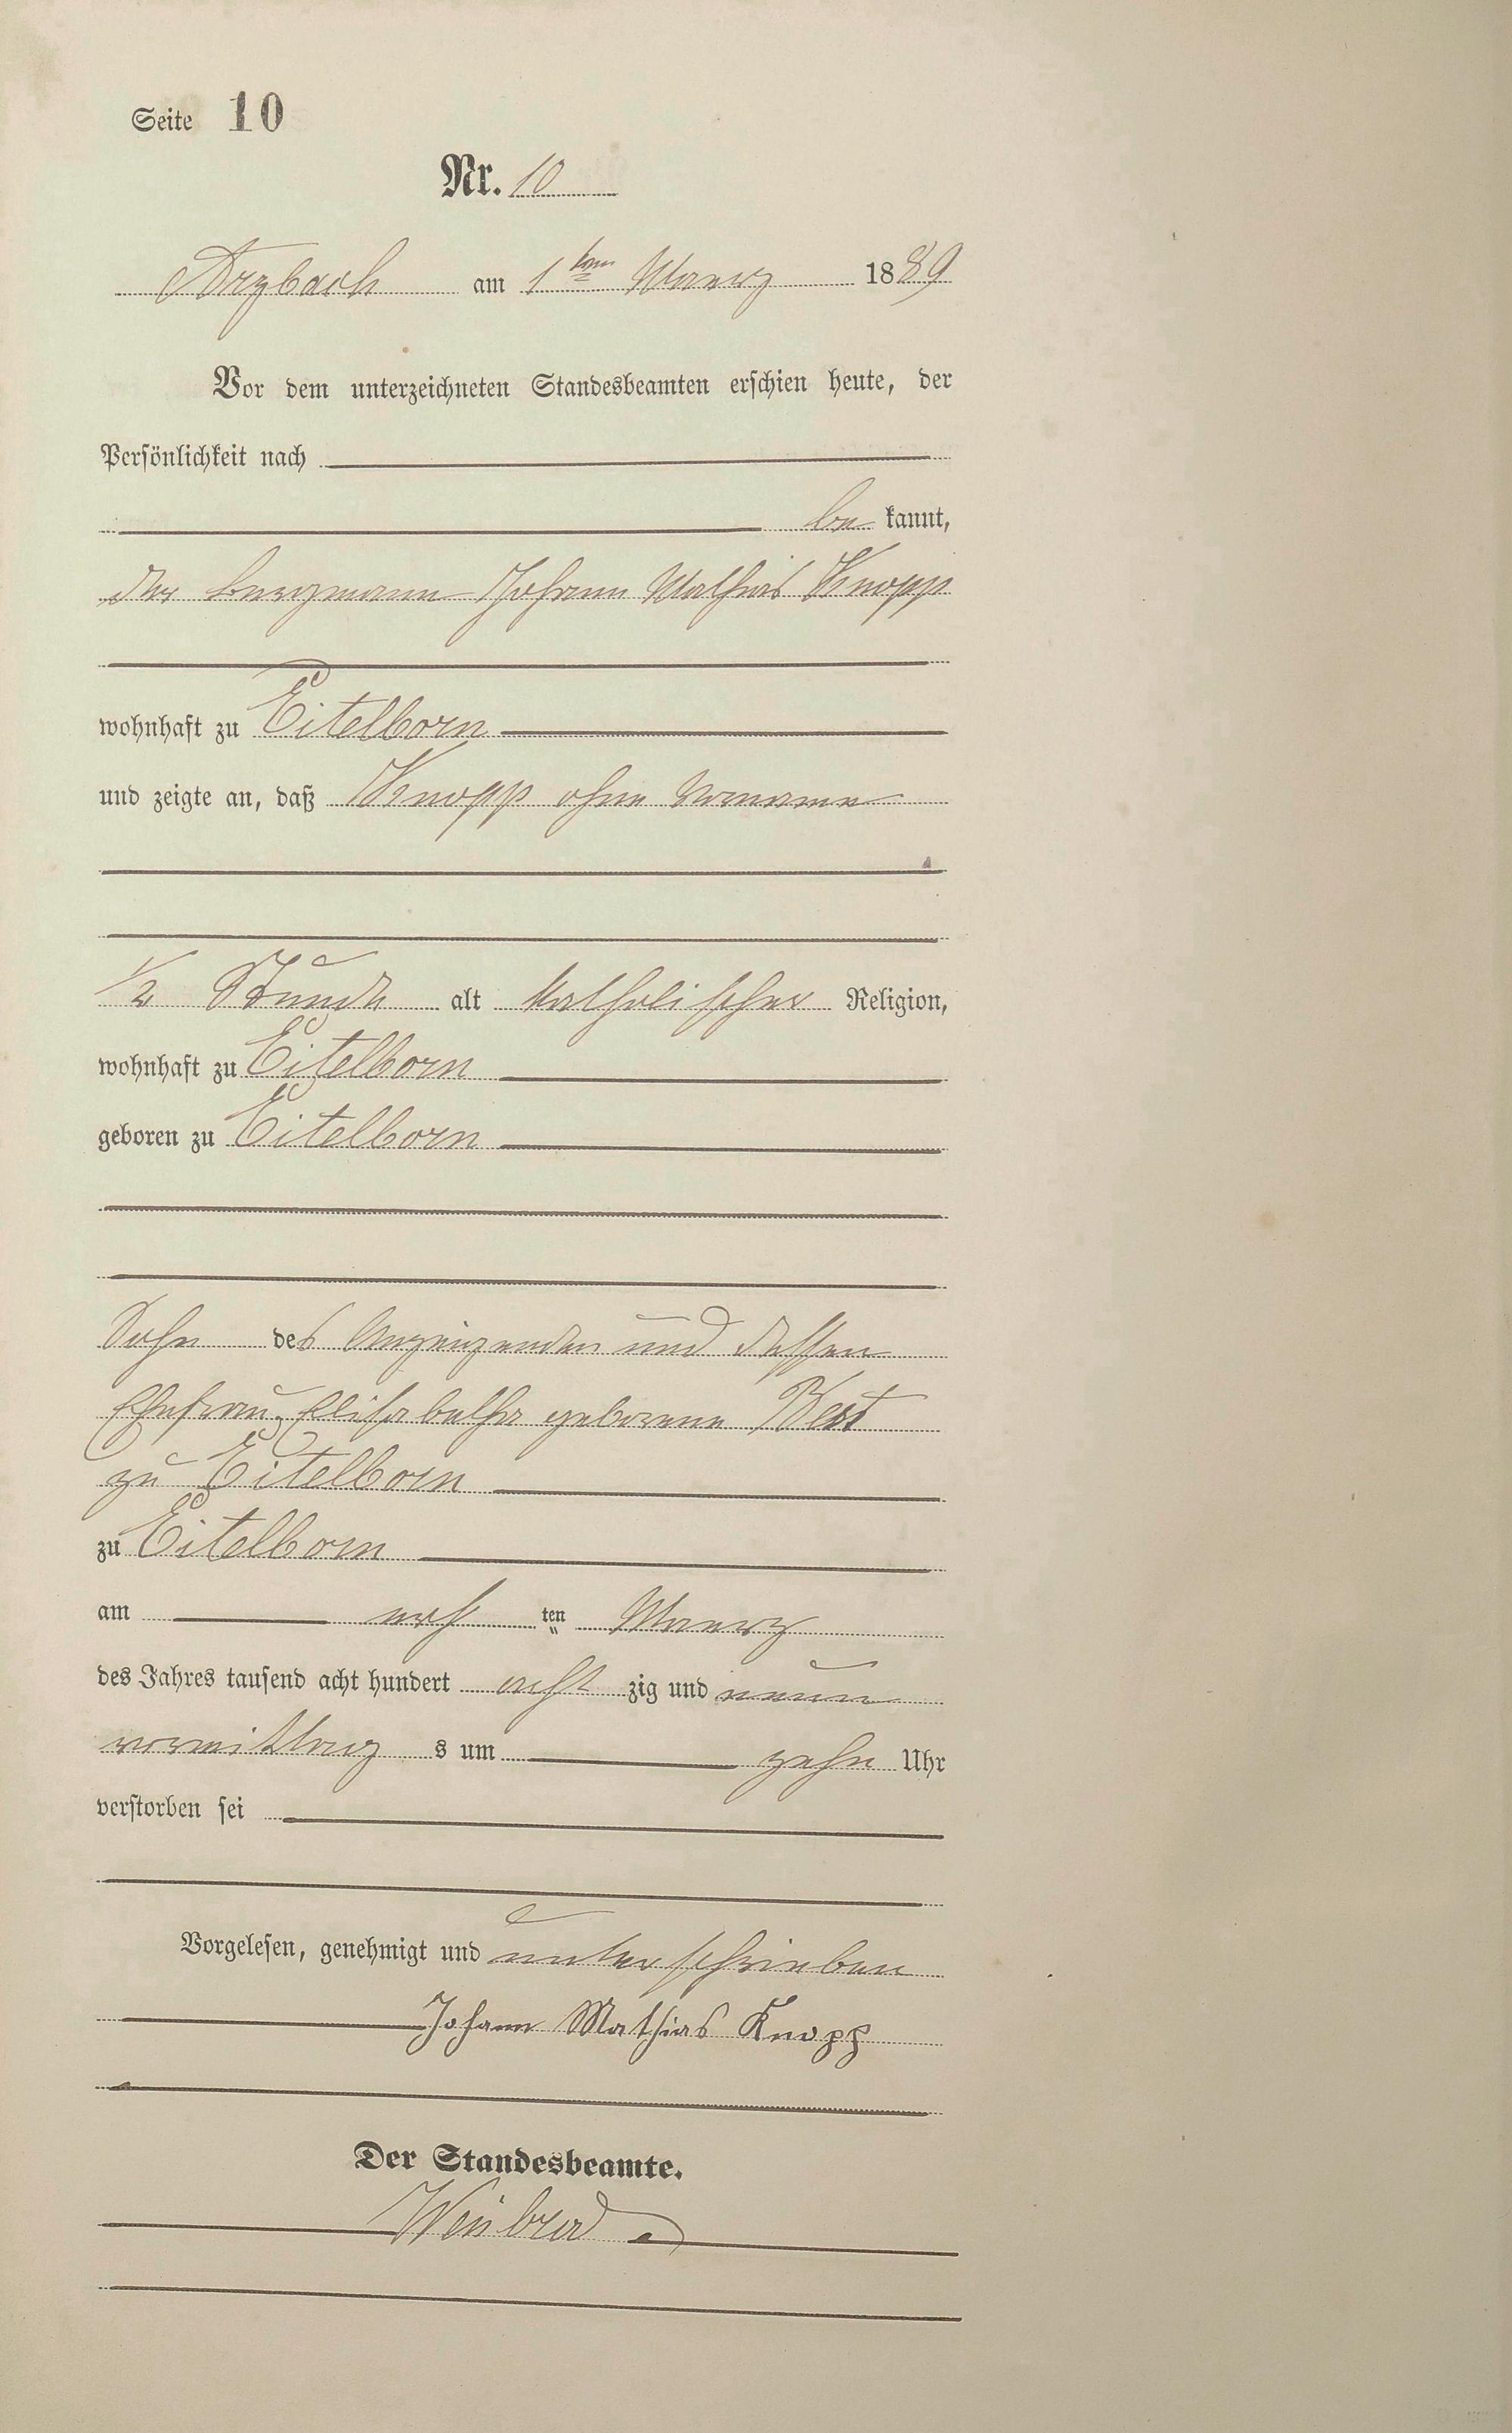 Seite 10
Nr. 10
Arzbach am 1ten Maerz 1889
Vor dem unterzeichneten Standesbeamten erschien heute, der
Persönlichkeit nach
be kannt,
der Bergmann Johann Mathias Knopp
wohnhaft zu Eitelborn
und zeigte an, daß Knopp ohne Vorname
1/2 Stunde alt katholischer Religion,
wohnhaft zu Eitelborn
geboren zu Eitelborn
Sohn des Anzeigenden und dessen
Ehefrau, Elisabetha geborene Best
zu Eitelborn
zu Eitelborn
am erst ten Maerz
des Jahres tausend acht hundert acht zig und neun
vormittag s um zehn Uhr
verstorben sei
Vorgelesen, genehmigt und unterschrieben
Johann Mathias Knopp
Der Standesbeamte.